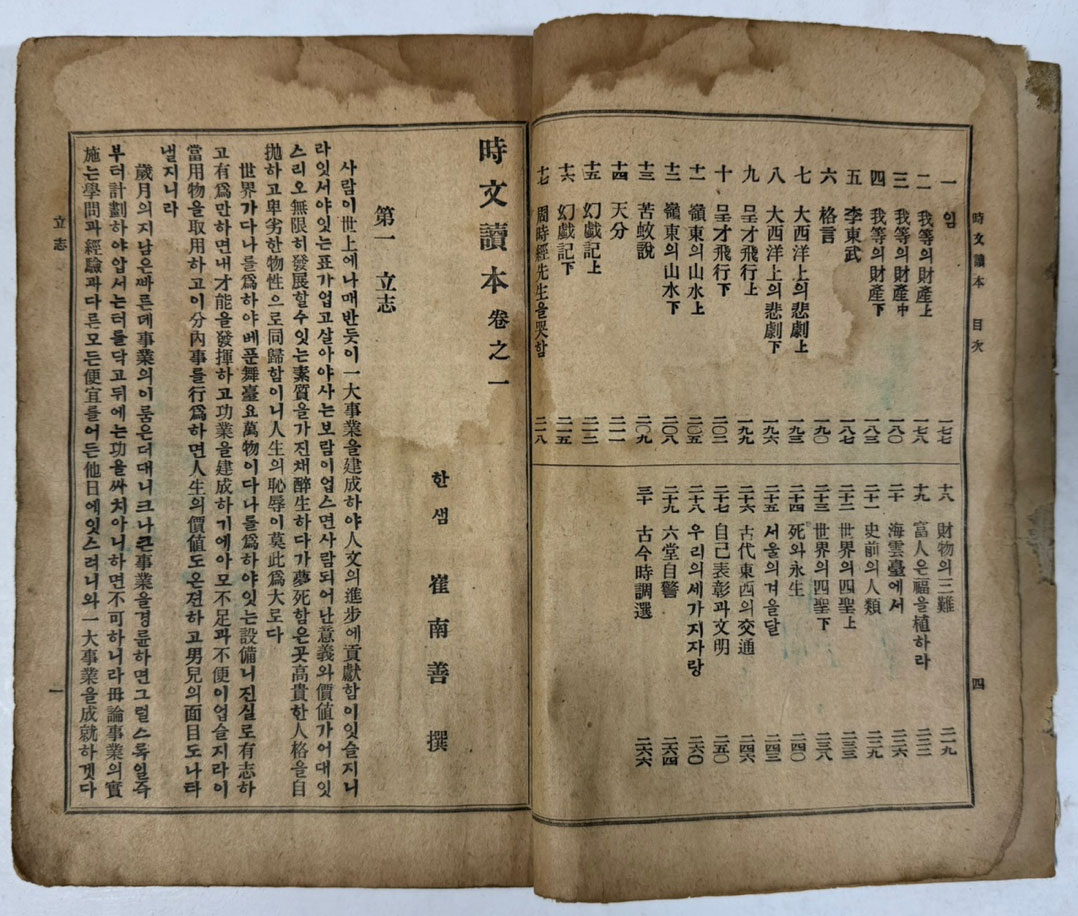 時文讀本 目次
四
一 임 一七七
二 我等의財產上 一七八
三 我等의財產中 一八〇
四 我等의財產下 一八三
五 李東武 一八七
六 格言 一九〇
七 大西洋上의悲劇上 一九三
八 大西洋上의悲劇下 一九六
九 呈才飛行上 一九九
十 呈才飛行下 二〇二
十一 嶺東의山水上 二〇五
十二 嶺東의山水下 二〇八
十三 苦蚊說 二〇九
十四 天分 二一一
十五 幻戱記上 二一三
十六 幻戱記下 二一五
十七 周時經先生을哭함 二一八
十八 財物의三難 二一九
十九 富人은福을植하라 二二三
二十 海雲臺에서 二二六
二十一 史前의人類 二二九
二十二 世界의四聖上 二三三
二十三 世界의四聖下 二三八
二十四 死와永生 二四〇
二十五 서울의겨을달 二四三
二十六 古代東西의交通 二四六
二十七 自己表彰과文明 二五〇
二十八 우리의세가지자랑 二六〇
二十九 六堂自警 二六四
三十 古今時調選 二六六
時文讀本 卷之一
한샘 崔南善 撰
第一 立志
사람이世上에나매반듯이一大事業을建成하야人文의進步에貢獻함이잇슬지니
라잇서야잇는표가업고살아야사는보람이업스면사람되어난意義와價値가어대잇
스리오無限히發展할수잇는素質을가진채醉生하다가夢死함은곳高貴한人格을自
拋하고卑劣한物性으로同歸함이니人生의恥辱이莫此爲大로다
世界가다나를爲하야베푼舞臺요萬物이다나를爲하야잇는設備니진실로有志하
고有爲만하면내才能을發揮하고功業을建成하기에아모不足과不便이업슬지라이
當用物을取用하고이分內事를行爲하면人生의價値도온전하고男兒의面目도나타
낼지니라
歲月의지남은빠른데事業의이룸은더대니크나큰事業을경륜하면그럴스록일즉
부터計劃하야압서는터를닥고뒤에는功을싸치아니하면不可하니라毋論事業의實
施는學問과經驗과다른모든便宜를어든他日에잇스려니와一大事業을成就하겟다
立志
一